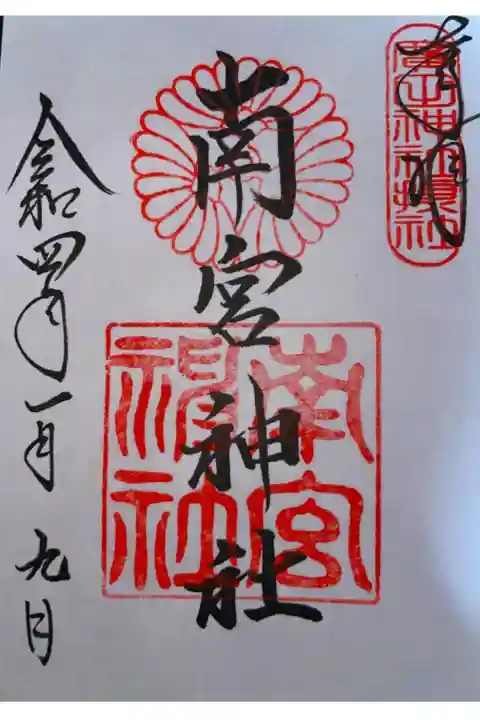 奉拝
南宮神社
南宮神社
令和四年一月九日